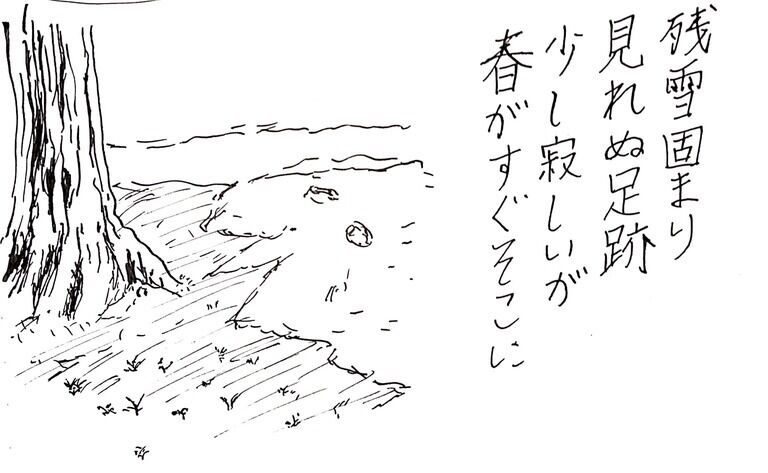 残雪固まり
見れぬ足跡
少し寂しいが
春がすぐそこに